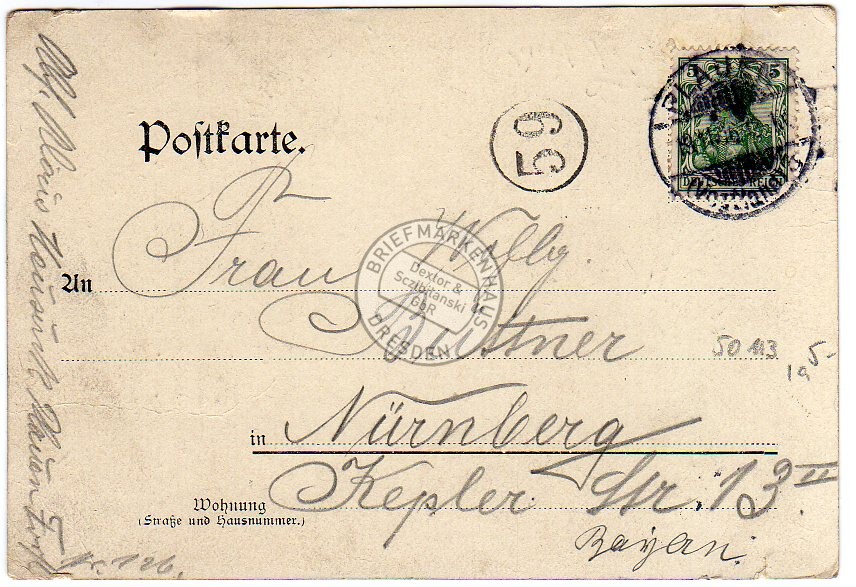 Postkarte.
59
5 5
An Frau Willy
Küstner
in Nürnberg
Wohnung
(Straße und Hausnummer.)
Kepler Str. 13 II
Bayern.
50 113
5-
BRIEFMARKENHAUS
Dextor &
Sczibilanski
GbR
DRESDEN
Nr. 126.